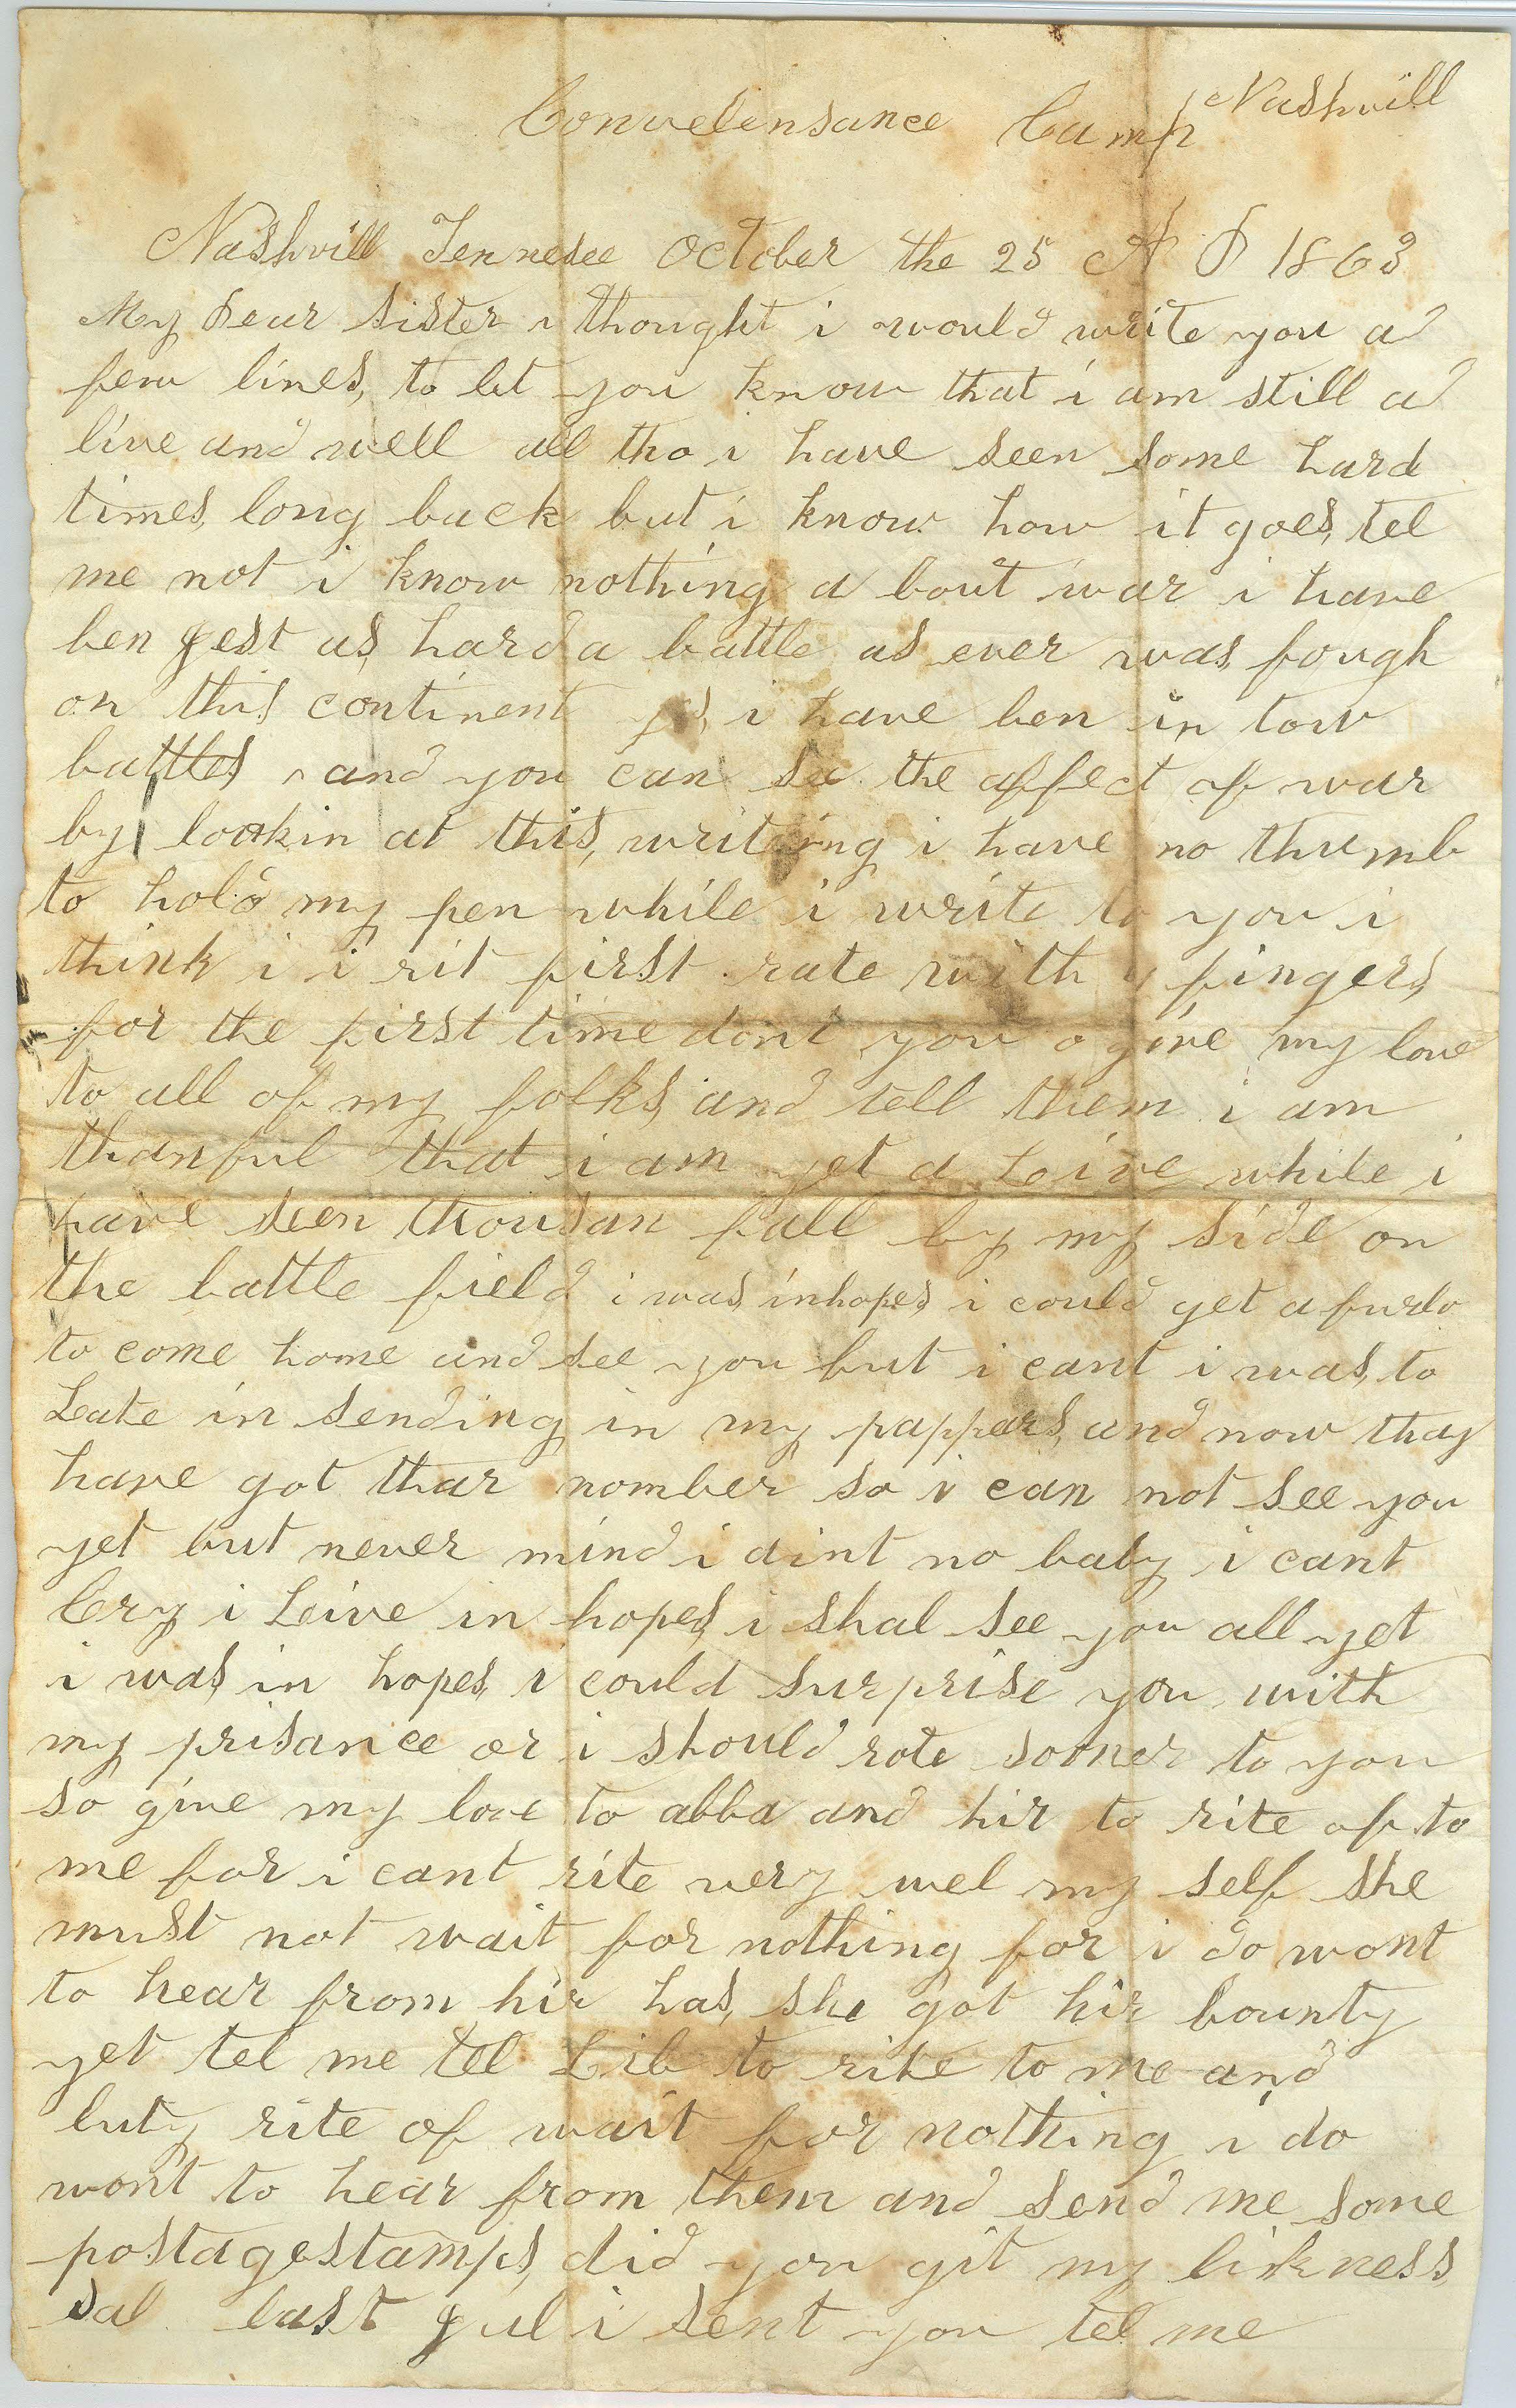 Convelensance Camp Nashvill
Nashvill Tennesee October the 25 A D 1863
My Dear Sister i thought i would write you a
few lines, to let you know that i am still a
live and well all tho i have seen some hard
times, long back but i know how it goes, tel
me not i know nothing a bout war i have
ben gest as hard a battle as ever was fough
on this continent yes, i have ben in tow
battles and you can see the affect of war
by lookin at this, writeing i have no thumb
to hold my pen while i write to you i
think i i rit first rate with fingers,
for the first time dont you o give my love
to all of my folks, and tell them i am
thanful that i am yet a Leive while i
have seen thousan fall by my side on
the battle field i was, inhopes, i could get a furlo
to come home and see you but i cant i was, to
Late in sending in my pappers, and now thay
have got thar nomber so i can not see you
yet but never mind i aint no baby i cant
Cry i Leive in hopes, i shal see you all yet
i was, in hopes, i could surprise you with
my prisance or i should rote sooner to you
so give my love to abba and hir to rite of to
me for i cant rite very wel my self she
must not wait for nothing for i do wont
to hear from hir has, she got hir bounty
yet tel me tel Lib to rite to me and
luty rite of wait for nothing i do
wont to hear from them and send me some
postagestamps, did you git my likness
sal last gul i sent you tel me